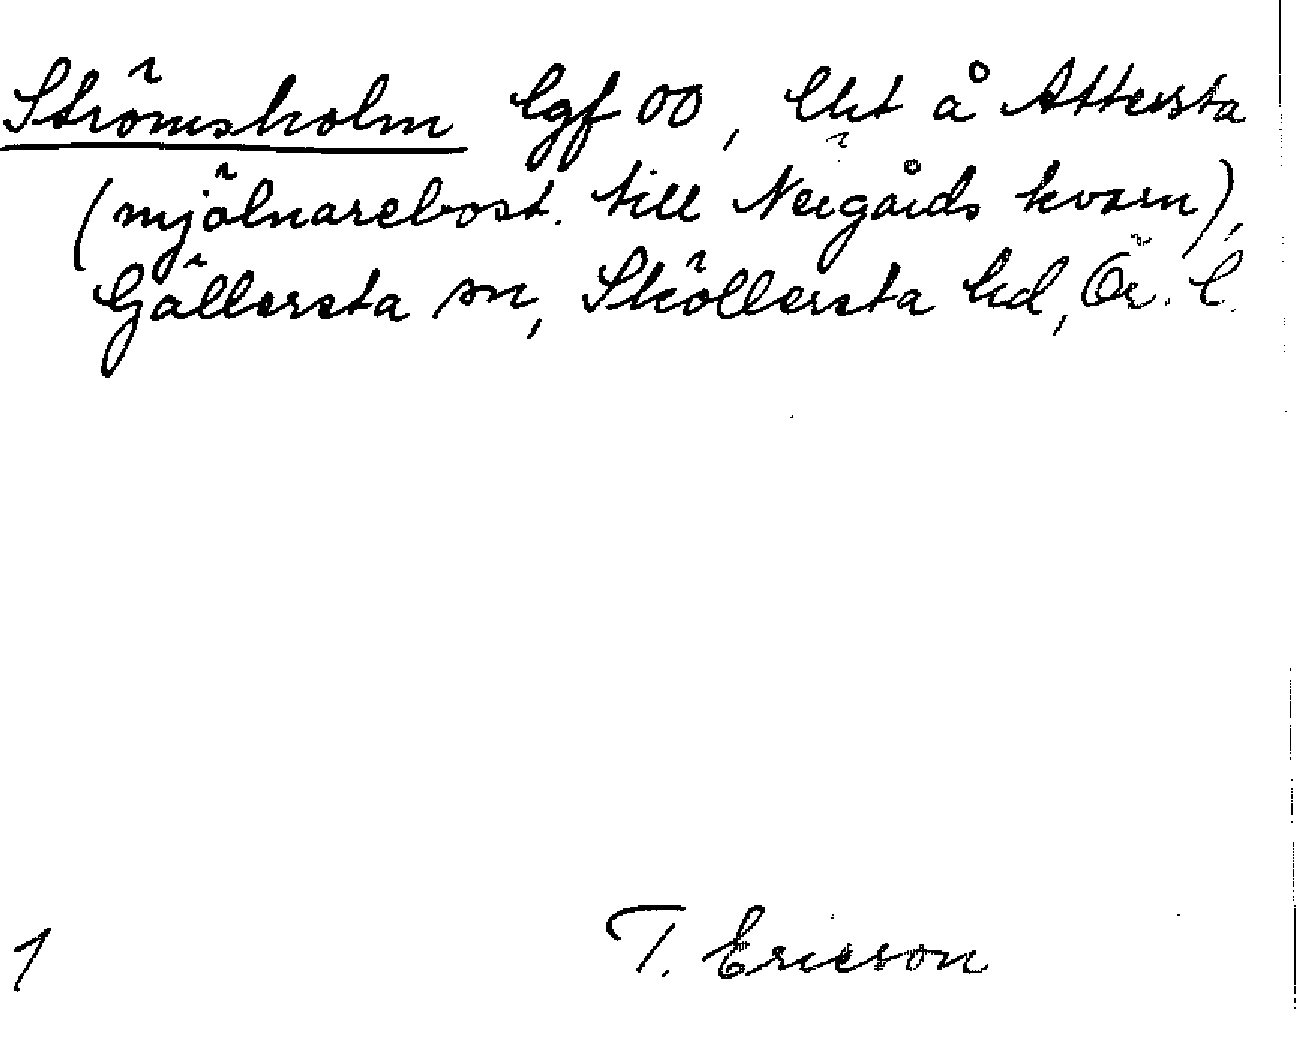 Strömsholm lgf 00, lht å Attersta
(mjölnarebost. till Nergårds kvarn),
Gällersta sn, Sköllersta hd, Ör. l.
1 T. Ericson